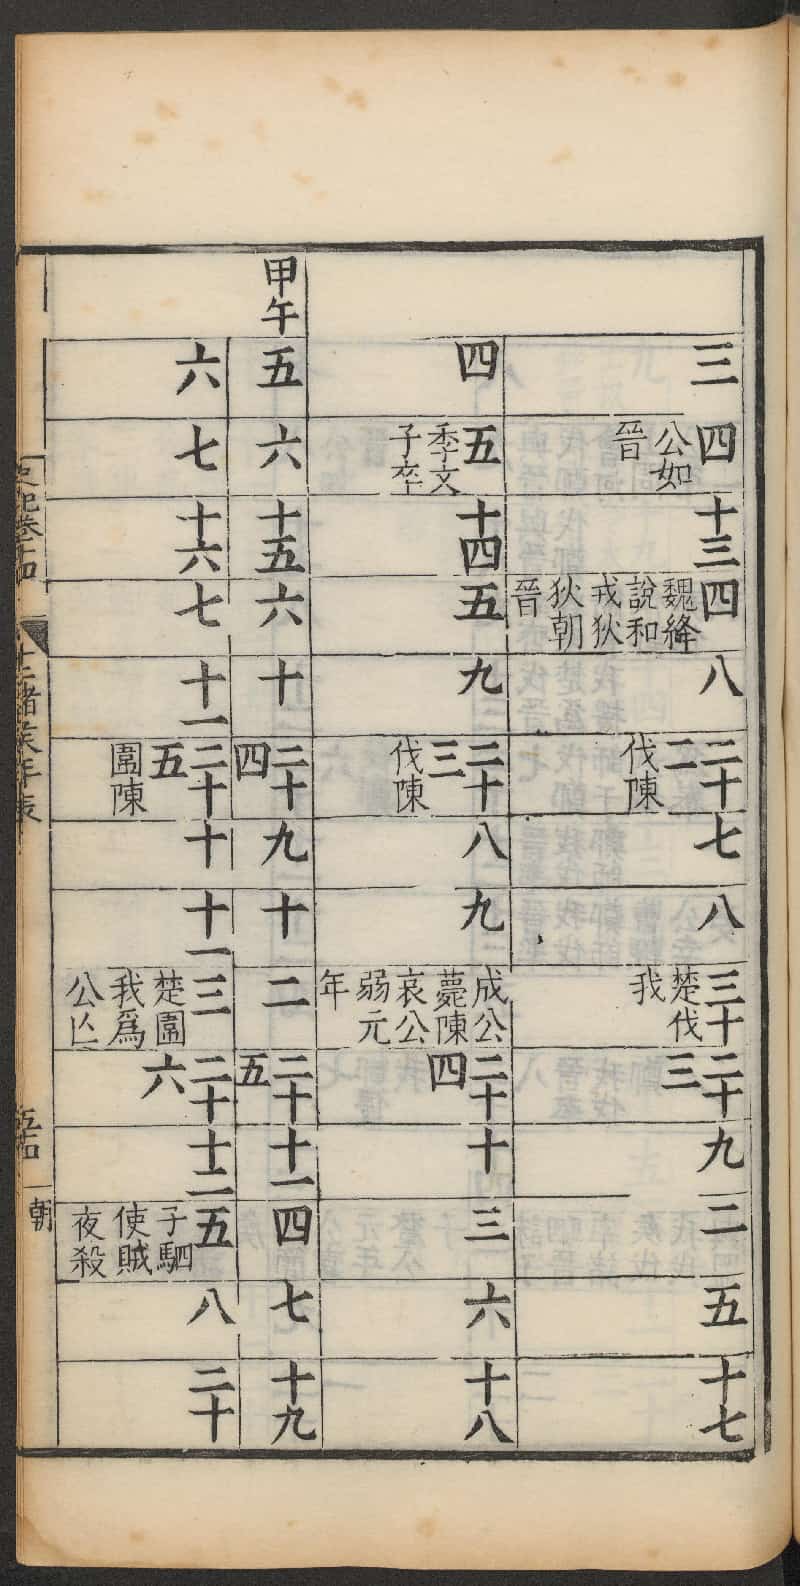 三
四
公如
晉
十三
四
魏絳
說和
戎狄
狄朝
晉
八
二十
二
伐陳
七
八
三十
楚伐
我
二十
三
九
二
五
十七
四
五
季文
子卒
十四
五
九
二十
三
伐陳
八
九
成公
薨陳
哀公
弱元
年
二十
四
十
三
六
十八
甲午
五
六
十五
六
十
二十
四
九
十
二
二十
五
十一
四
七
十九
六
七
十六
七
十一
二十
五
圍陳
十
十一
三
楚圍
我爲
公亾
二十
六
十二
五
子駟
使賊
夜殺
八
二十
史記卷十四
十二諸侯年表
朝